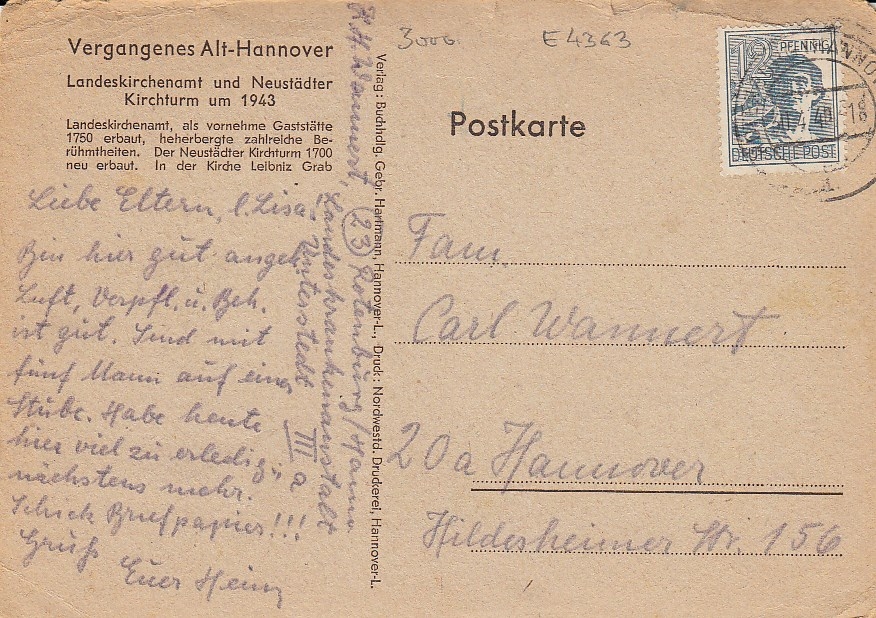 Vergangenes Alt-Hannover
Landeskirchenamt und Neustädter
Kirchturm um 1943
Landeskirchenamt, als vornehme Gaststätte
1750 erbaut, heherbergte zahlreiche Be-
rühmtheiten. Der Neustädter Kirchturm 1700
neu erbaut. In der Kirche Leibniz Grab
Liebe Eltern, l. Lisa!
Bin hier gut angek.
Luft, Verpfl. u. Beh.
ist gut. Sind mit
fünf Mann auf einer
Stube. Habe heute
hier viel zu erledig.,
nächstens mehr.
Schick Briefpapier!!!
Gruß
Euer Heinz
Wannert, (23) Rotenburg/Hann.
Landeskrankenanstalt
Unterstedt III a
Verlag: Buchhdlg. Gebr. Hartmann, Hannover-L., Druck: Nordwestd. Druckerei, Hannover-L.
E 4363
Postkarte
12 PFENNIG
DEUTSCHE POST
Fam.
Carl Wannert
20a Hannover
Hildesheimer Str. 156